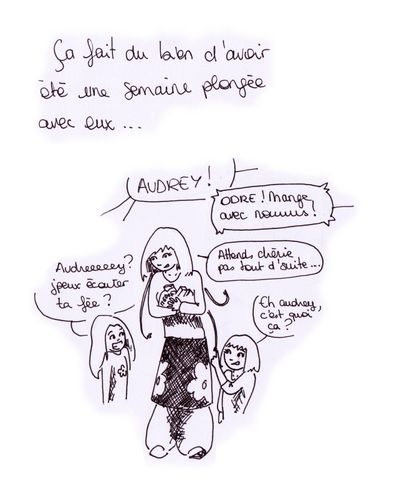 Ça fait du bien d'avoir
été une semaine plongée
avec eux...
AUDREY !
ODRE ! Mange
avec nouuus !
Attend, chérie
pas tout d'suite...
Audreeeeey?
j'peux écouter
ta fée ?
Eh audrey,
c'est quoi
ça ?